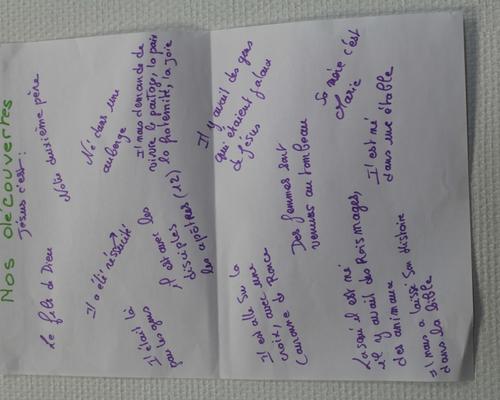 Nos découvertes
Jésus c'est :
Le fils de Dieu
Notre deuxième père
Il a été réssucité
Né dans une
auberge
Il était là
par les gens
Il est avec les
disciples
les apôtres (12)
Il nous demande de
vivre le partage, la paix
la fraternité, la joie
Il y avait des gens
qui étaient jaloux
de Jésus
Il est allé sur la
croix, avec une
couronne de Ronce
Des femmes sont
venues au tombeau
Sa mère c'est
Marie
Lorsqu'il est né
il y avait des Rois mages,
des animaux
Il est né
dans une étable
Il nous a laissé Son Histoire
dans la bible